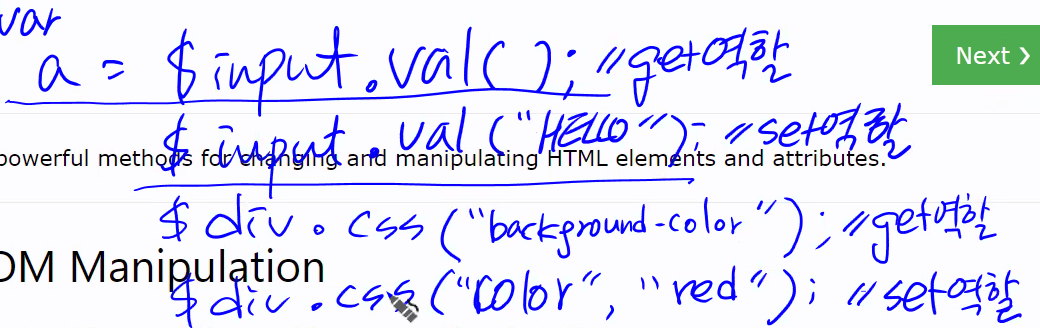 var
a = $input.val(); //get역할
Next ❯
$input.val("HELLO"); //set역할
powerful methods for changing and manipulating HTML elements and attributes.
$div.css("background-color"); //get역할
OM Manipulation
$div.css("color", "red"); //set역할